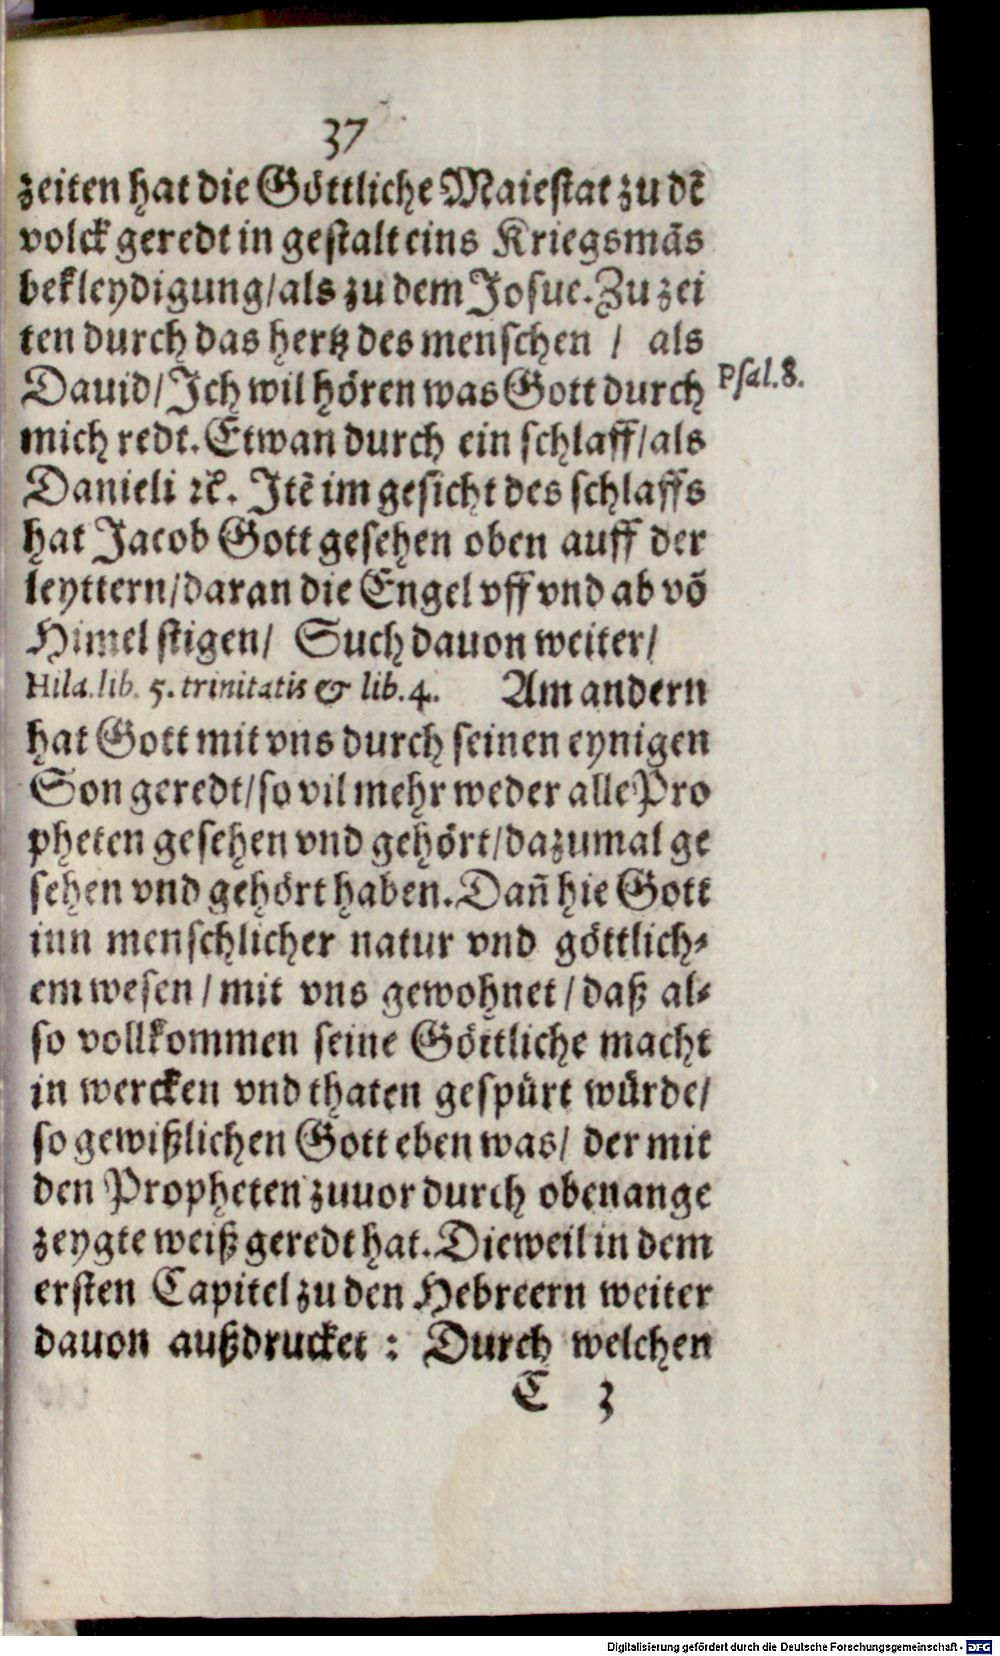 37
zeiten hat die Göttliche Maiestat zu dē
volck geredt in gestalt eins Kriegsmās
bekleydigung/als zu dem Josue. Zu zei
ten durch das hertz des menschen / als
Dauid/Ich wil hören was Gott durch
Psal.8.
mich redt. Etwan durch ein schlaff/als
Danieli ꝛc̃. Itē im gesicht des schlaffs
hat Jacob Gott gesehen oben auff der
leyttern/daran die Engel vff vnd ab vō
Himel stigen/ Such dauon weiter/
Hila. lib. 5. trinitatis & lib. 4. Am andern
hat Gott mit vns durch seinen eynigen
Son geredt/so vil mehr weder alle Pro
pheten gesehen vnd gehört/dazumal ge
sehen vnd gehört haben. Dañ hie Gott
inn menschlicher natur vnd göttlich⸗
em wesen / mit vns gewohnet / daß al⸗
so vollkommen seine Göttliche macht
in wercken vnd thaten gespürt würde/
so gewißlichen Gott eben was/ der mit
den Propheten zuuor durch obenange
zeygte weiß geredt hat. Dieweil in dem
ersten Capitel zu den Hebreern weiter
dauon außdrucket : Durch welchen
C 3
Digitalisierung gefördert durch die Deutsche Forschungsgemeinschaft - DFG